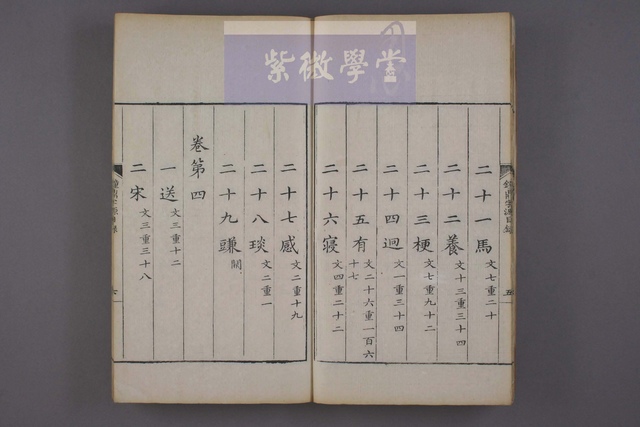 紫微學堂
二十一馬 文七重二十
二十二養 文十三重三十四
二十三梗 文七重九十二
二十四迥 文一重三十四
二十五有 文二十六重一百六十七
二十六寢 文四重二十二
二十七感 文二重十九
二十八琰 文二重一
二十九豏 闕
卷第四
一送 文三重十二
二宋 文三重三十八
六